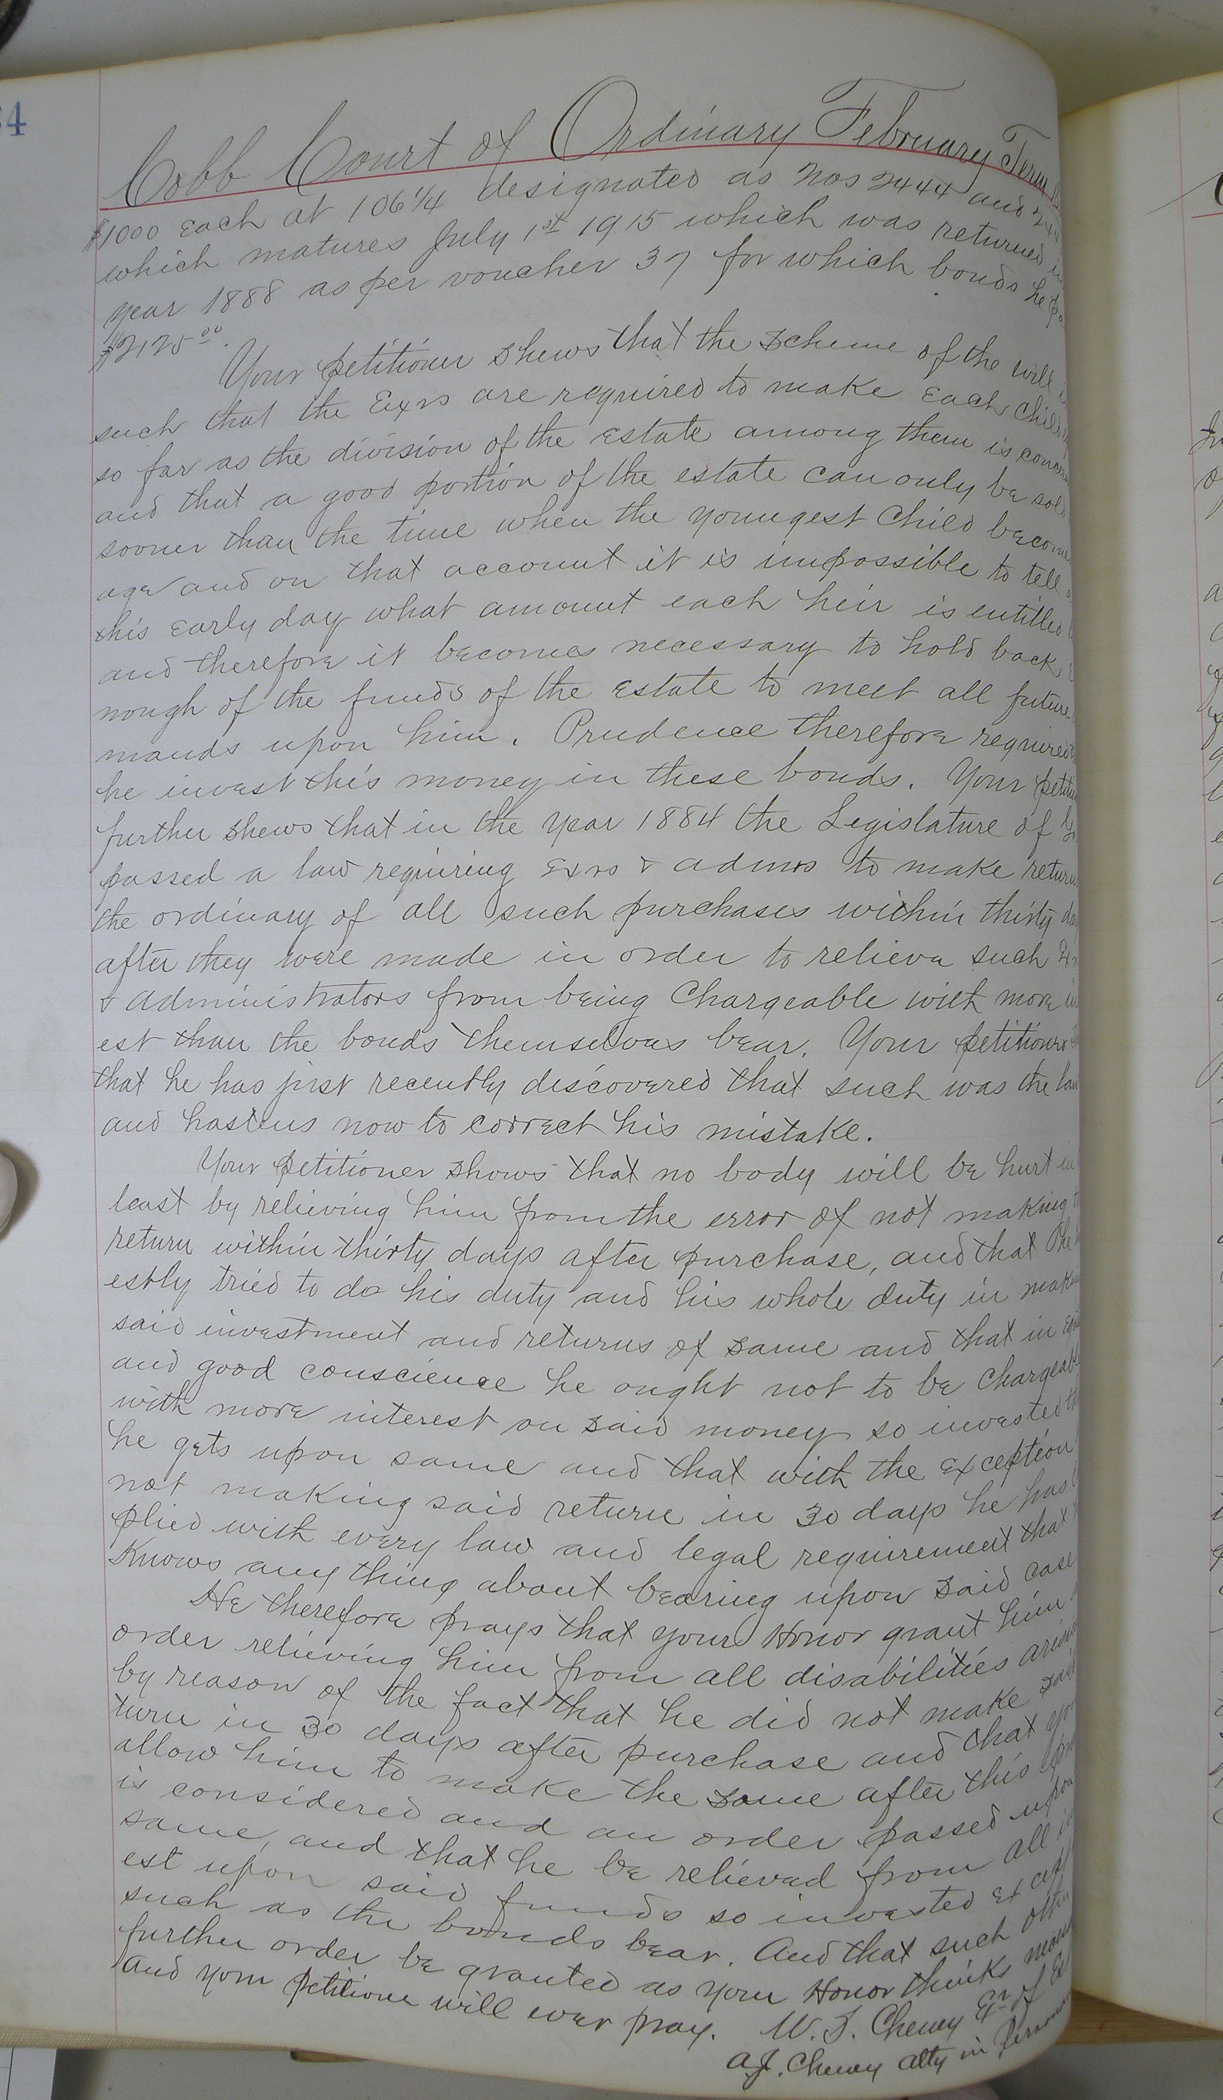 34
Cobb Court of Ordinary February Term
$1000 each at 106 1/4 designated as Nos 2444 and
which matures July 1st 1915 which was returned
year 1888 as per voucher 37 for which bonds he
$2125.00.
Your petitioner shews that the scheme of the will
such that the Exrs are required to make each child
so far as the division of the estate among them is
and that a good portion of the estate can only be sold
sooner than the time when the youngest child
age and on that account it is impossible to tell
this early day what amount each heir is entitled
and therefore it becomes necessary to hold back
nough of the funds of the estate to meet all future
mands upon him. Prudence therefore required
he invest this money in these bonds. Your
further shews that in the year 1884 the Legislature of
passed a law requiring Exrs & admrs to make return
the ordinary of all such purchases within thirty
after they were made in order to relieve such
& administrators from being chargeable with more
est than the bonds themselves bear. Your petitioner
that he has just recently discovered that such was the law
and hastens now to correct his mistake.
Your petitioner shows that no body will be hurt
least by relieving him from the error of not making
return within thirty days after purchase, and that
estly tried to do his duty and his whole duty in
said investment and returns of same and that in
and good conscience he ought not to be chargeable
with more interest on said money so invested
he gets upon same and that with the exception
not making said return in 30 days he has
plied with every law and legal requirement that
knows any thing about bearing upon said case
He therefore prays that your Honor grant him
order relieving him from all disabilities
by reason of the fact that he did not make said
turn in 30 days after purchase and that
allow him to make the same after this
is considered and an order passed upon
same, and that he be relieved from all
est upon said funds so invested except
such as the bonds bear. And that such other
further order be granted as your Honor thinks
And your petitioner will ever pray. W. J. Cheney Exr of
A.J. Cheney Atty in